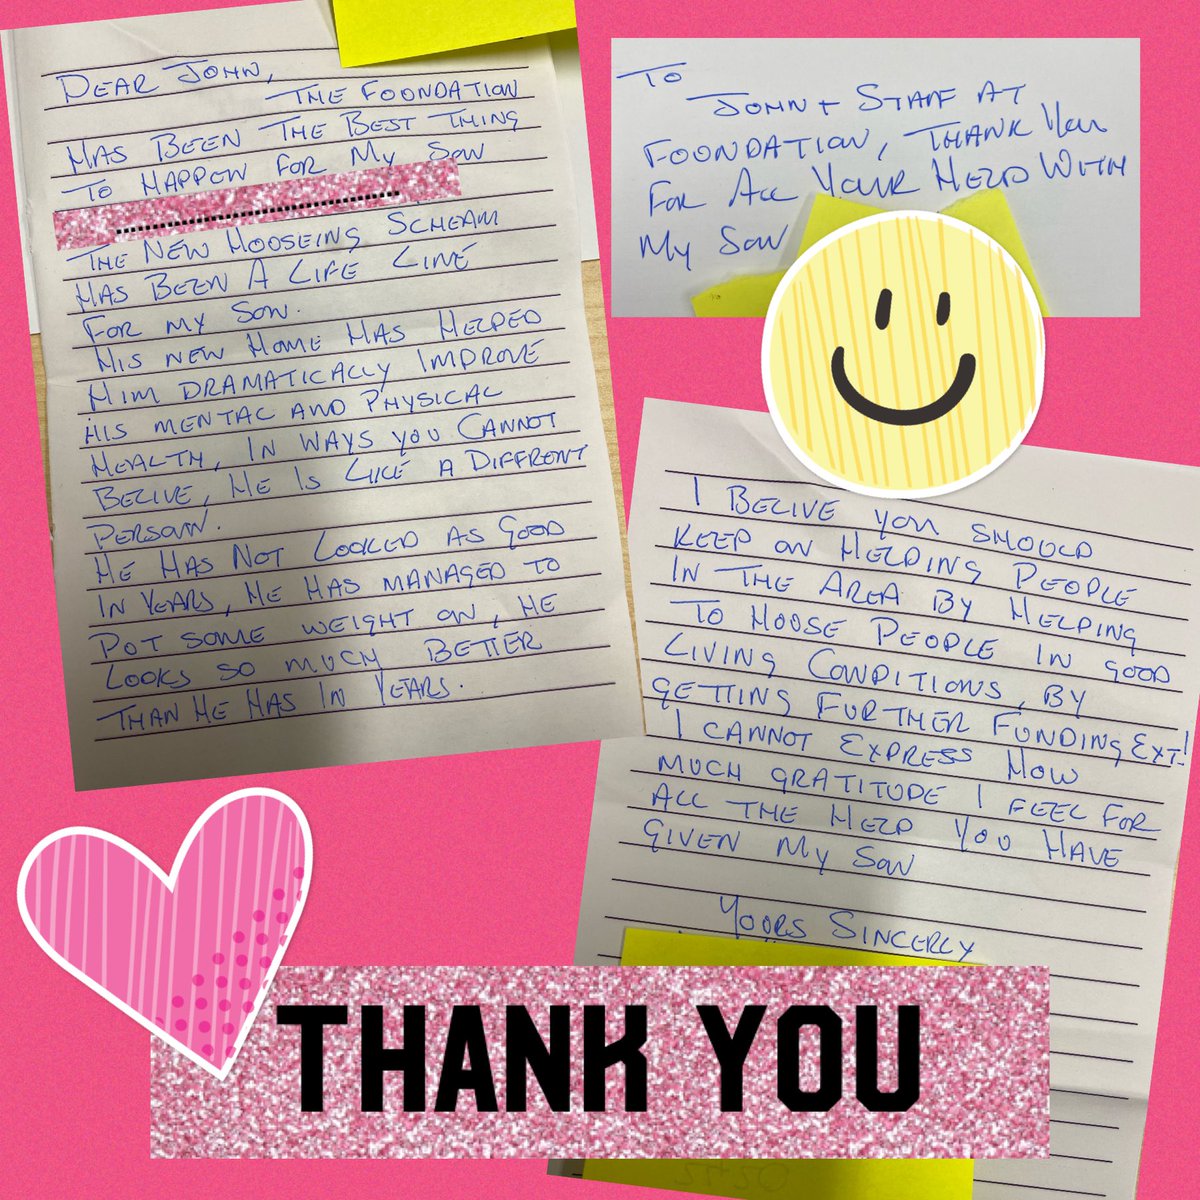 DEAR JOHN,
THE FOUNDATION
HAS BEEN THE BEST THING
TO HAPPEN FOR MY SON
THE NEW HOUSEING SCHEAM
HAS BEEN A LIFE LINE
FOR MY SON.
HIS NEW HOME HAS HELPED
HIM DRAMATICALLY IMPROVE
HIS MENTAL AND PHYSICAL
HEALTH, IN WAYS YOU CANNOT
BELIVE, HE IS LIKE A DIFFRENT
PERSON.
HE HAS NOT LOOKED AS GOOD
IN YEARS, HE HAS MANAGED TO
PUT SOME WEIGHT ON, HE
LOOKS SO MUCH BETTER
THAN HE HAS IN YEARS.
TO
JOHN + STAFF AT
FOUNDATION, THANK YOU
FOR ALL YOUR HELP WITH
MY SON
I BELIVE YOU SHOULD
KEEP ON HELPING PEOPLE
IN THE AREA BY HELPING
TO HOUSE PEOPLE IN GOOD
LIVING CONDITIONS, BY
GETTING FURTHER FUNDING EXT!
I CANNOT EXPRESS HOW
MUCH GRATITUDE I FEEL FOR
ALL THE HELP YOU HAVE
GIVEN MY SON
YOURS SINCERLY
THANK YOU